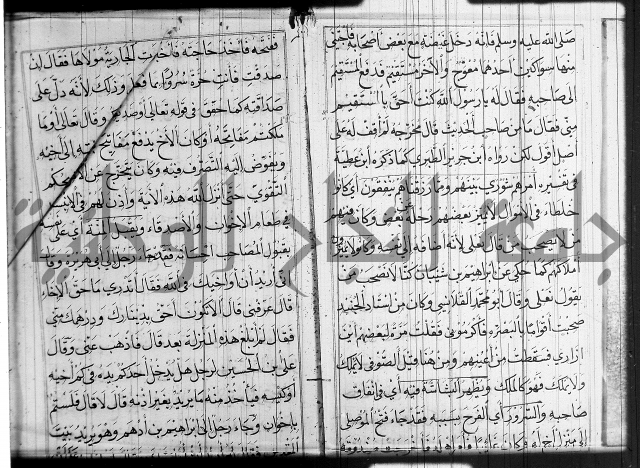 صلى الله عليه وسلم فانه دخل غيضة مع بعض اصحابه فاجتنى
منها سواكين أحدهما معوج والآخر مستقيم فدفع المستقيم
الى صاحبه فقال له يا رسول الله كنت أحق بالمستقيم
منى فقال ما من صاحب الحديث قال مخرجه لم اقف له على
أصل اقول لكن رواه ابن جرير الطبري كما ذكره ابن عطية
في تفسيره امرهم شورى بينهم ومما رزقناهم ينفقون أي كانوا
خلطاء في الاموال لا يميز بعضهم رحله عن بعض وكان فيهم
من لا يصحب من قال نعلى لأنه اضافه الى نفسه وكانوا لا يميزون
أملاكهم كما حكى عن ابراهيم بن شيبان كنا لا نصحب من
يقول نعلى وقال ابو محمد القلانسى وكان من استاد الجنيد
صحبت أقواما بالبصرة فأكرمونى فقلت مرة لبعضهم أين
ازارى فسقطت من أعينهم ومن هنا قيل الصوفى لا يملك
ولا يملك فهو كالملك ونظير الثالثة فيه أي في انفاق
صاحبه والسرور أي الفرح بسببه فقد جاء فتح الموصلى
ففتحه فأخذ حاجته فأخبرت الجارية مولاها فقال ان
صدقت فانت حرة سرورا بما فعل وذلك لأنه دل على
صداقته كما حقق في قوله تعالى أو صديقكم وقال تعالى أو ما
ملكتم مفاتحه أو كان الأخ يدفع مفاتيح بيته الى أخيه
ويفوض اليه التصرف فيه وكان يتحرج عن الأكل بحكم
التقوى حتى أنزل الله هذه الآية وأذن لهم في الانبساط
في طعام الاخوان والأصدقاء ويقبل المنة أي على
يقبول المصاحب احسانه فقد جاء رجل الى أبى هريرة وقال
انى أريد أن أواخيك في الله فقال أتدرى ما حق الإخاء
قال عرفنى قال لا تكون أحق بدينارك ودرهمك منى
فقال لم أبلغ هذه المنزلة بعد قال فاذهب عنى وقال
على بن الحسين لرجل هل يدخل أحدكم يده في كم أخيه
أو كيسه فيأخذ منه ما يريد بغير اذنه قال لا قال فلستم
باخوان وجاء رجل الى ابراهيم بن أدهم وهو يريد بيت
جامعة النجاح الوطنية